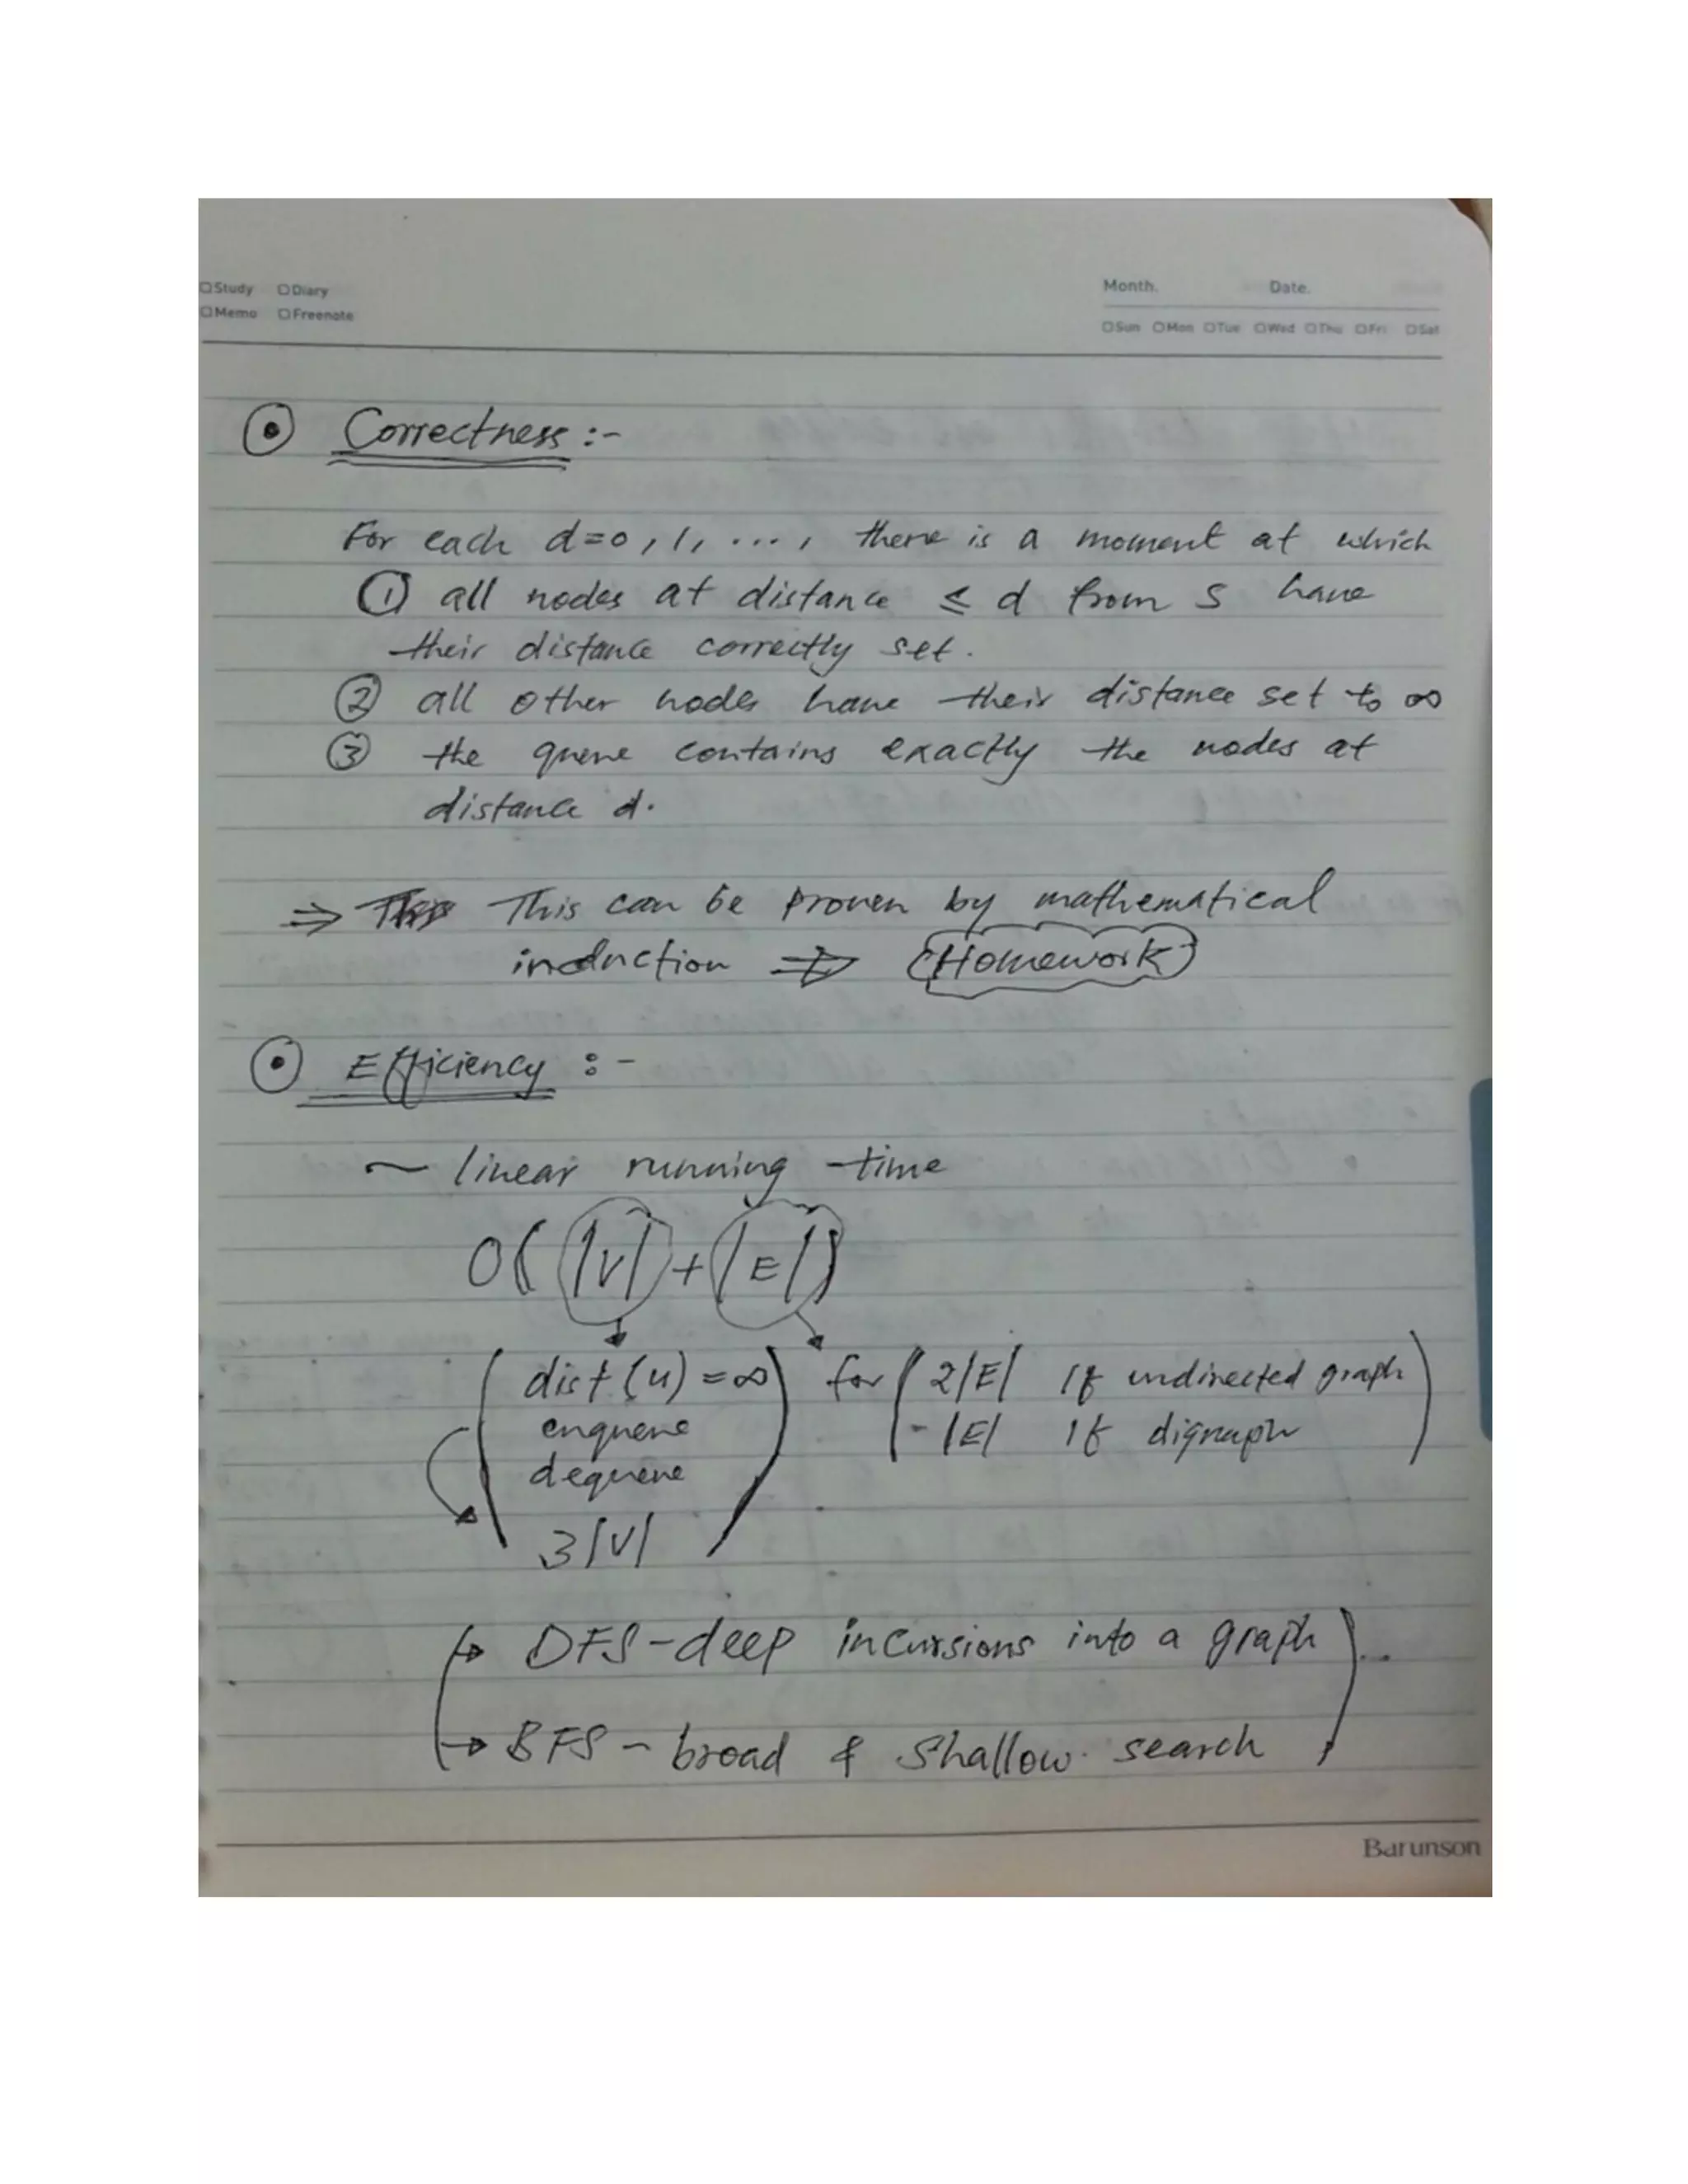 Study Diary
Memo Freenote
Month. Date.
Sun Mon Tue Wed Thu Fri Sat
Correctness :-
For each d=0, 1, ..., there is a moment at which
① all nodes at distance ≤ d from s have
their distance correctly set.
② all other nodes have their distance set to ∞
③ the queue contains exactly the nodes at
distance d.
⇒ This can be proven by mathematical
induction ⇒ Homework
Efficiency :-
~ linear running time
O(|V|+|E|)
dist(u) = ∞ for 2|E| If undirected graph
enqueue - |E| If digraph
dequeue
3|V|
→ DFS - deep incursions into a graph ..
→ BFS - broad & shallow search
Barunson